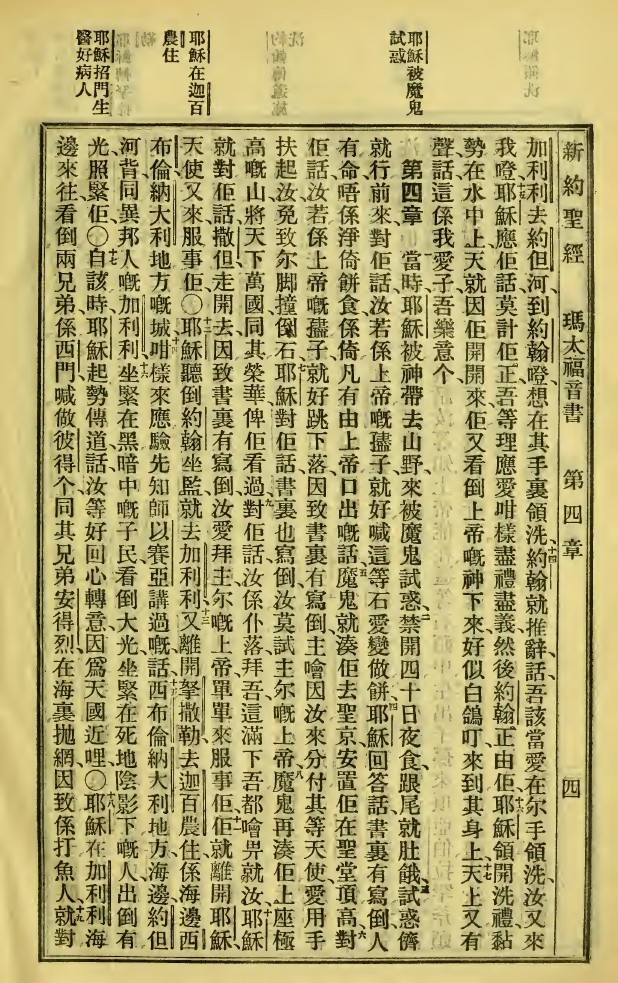 新約聖經 瑪太福音書 第四章 四
加利利去約但河到約翰嶝、想在其手裏領洗、約翰就推辭話、吾該當愛在尔手領洗、汝又來
我嶝、耶穌應佢話、莫計佢正、吾等理應愛咁樣盡禮盡義、然後約翰正由佢、耶穌領開洗禮、黏
勢在水中上、天就因佢開開來、佢又看倒上帝嘅神下來、好似白鴿叮、來到其身上、天上又有
聲話、這係我愛子、吾樂意个、
第四章 當時耶穌被神帶去山野、來被魔鬼試惑、禁開四十日夜食、跟尾就肚餓、試惑儕
就行前來、對佢話、汝若係上帝嘅孻子、就好喊這等石愛變做餅、耶穌回答話、書裏有寫倒、人
有命、唔係淨倚餅食、係倚凡有由上帝口出嘅話、魔鬼就湊佢去聖京、安置佢在聖堂頂高、對
佢話、汝若係上帝嘅孻子、就好跳下落、因致書裏有寫倒、主噲因汝來分付其等天使、愛用手
扶起汝、免致尔脚撞倒石、耶穌對佢話、書裏也寫倒、汝莫試主尔嘅上帝、魔鬼再湊佢上座極
高嘅山、將天下萬國同其榮華、俾佢看過、對佢話、汝係仆落拜吾、這滿下吾都噲畀就汝、耶穌
就對佢話、撒但走開去、因致書裏有寫倒、汝愛拜主尔嘅上帝、單單來服事佢、佢就離開耶穌、
天使又來服事佢〇耶穌聽倒約翰坐監、就去加利利、又離開拏撒勒、去迦百農住、係海邊西
布倫納大利地方嘅城、咁樣來應驗先知師以賽亞講過嘅話、西布倫納大利地方、海邊、約但
河背、同異邦人嘅加利利、坐緊在黑暗中嘅子民、看倒大光、坐緊在死地陰影下嘅人、出倒有
光照緊佢〇自該時耶穌起勢傳道話、汝等好回心轉意、因爲天國近哩〇耶穌在加利利海
邊來往、看倒兩兄弟、係西門喊做彼得个、同其兄弟安得烈、在海裏抛網、因致係打魚人、就對
耶穌被魔鬼
試惑
耶穌在迦百
農住
耶穌招門生
醫好病人